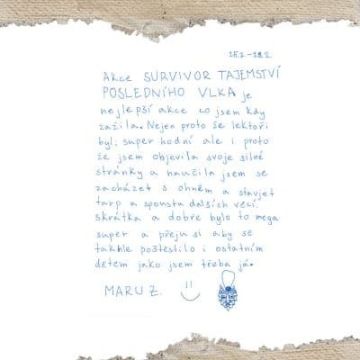 Akce SURVIVOR TAJEMSTVÍ
POSLEDNÍHO VLKA je
nejlepší akce co jsem kdy
zažila. Nejen proto že lektoři
byli super hodní ale i proto
že jsem objevila svoje silné
stránky a naučila jsem se
zacházet s ohněm a stavjet
tarp a spoustu dalších věcí.
Skrátka a dobře bylo to mega
super a přeju si aby se
takhle poštestilo i ostatním
dětem jako jsem třeba já.
MARU Z. :)